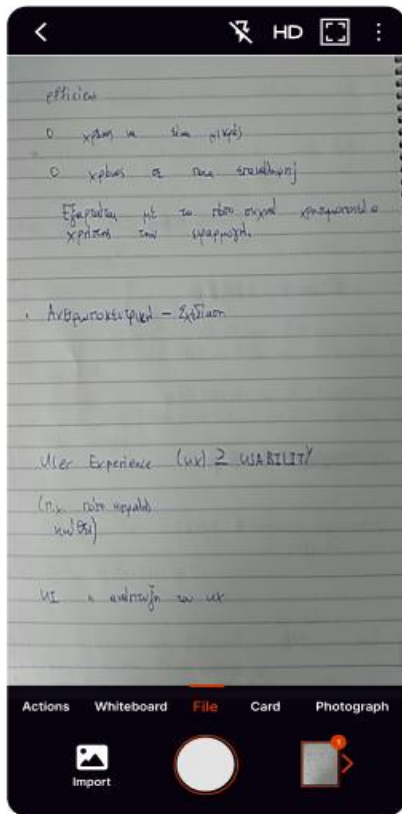 HD
Ο χρόνος να είναι μικρός
Ο χρόνος σε
Εξαρτάται με το πόσο συχνά χρησιμοποιεί ο
χρήστης την εφαρμογή.
Ανθρωποκεντρική – Σχεδίαση
User Experience (ux) ≥ USABILITY
(π.χ. πόσο
UI η ανάπτυξη του ux
Actions Whiteboard File Card Photograph
1
Import